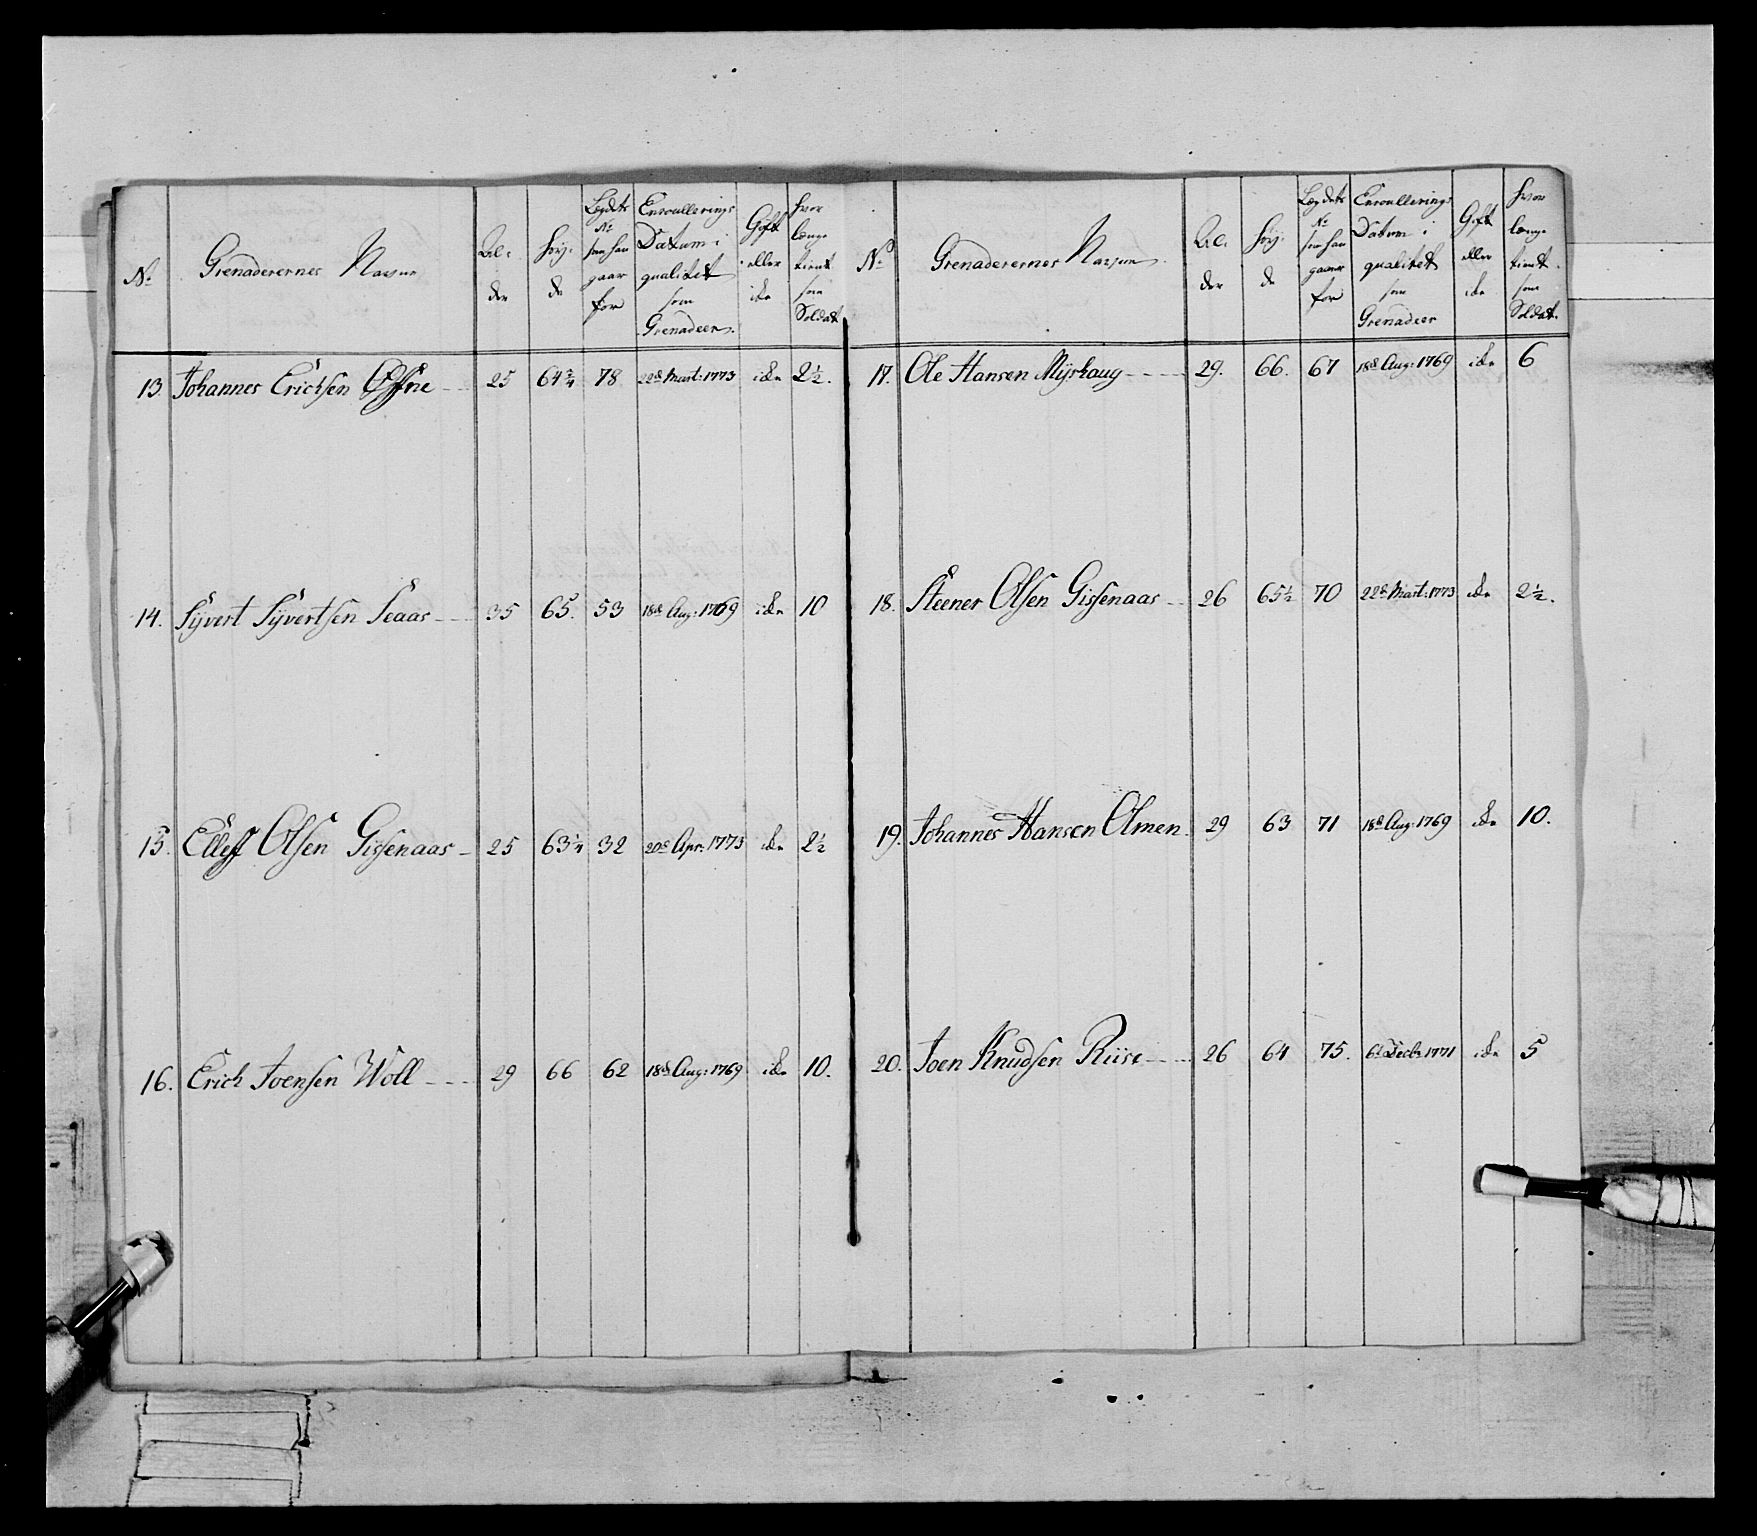 No
Grenaderernes Nafne
Al-
der
Høy-
de
Legdets
No
som han
gaar
for
Enroullerings
Datum i
qualitet
som
Grenadeer.
Gift
eller
icke
hvor
længe
tient
som
Soldat
13. Johannes Erichsen 25 64¾ 78 22d Mart: 1773 icke 2½.
14. Sÿvert Sÿvertsen Seaas 35 65. 53 18d Aug: 1769 icke 10
15. Elleff Olsen Gissenaas 25 63¼ 32 20d Apr: 1773 icke 2½
16. Erich Joensen Woll 29 66 62 18d Aug: 1769 icke 10.
No
Grenaderernes Nafne
Al-
der
Høy-
de
Legdets
No
som han
gaar
for
Enroullerings
Datum i
qualitet
som
Grenadeer
Gift
eller
icke
hvor
længe
tient
som
Soldat.
17. Ole Hansen Mÿrhaug 29. 66. 67 18d Aug: 1769 icke 6
18. Steener Olsen Gissenaas 26 65½ 70 22d Mart: 1773 icke 2½.
19. Johannes Hansen Olmen. 29 63 71 18d Aug: 1769 icke 10.
20. Joen Knudsen Riise 26 64 75. 6t Decbr 1771 icke 5